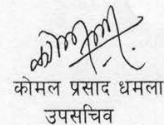 कोमल प्रसाद धमला
उपसचिव